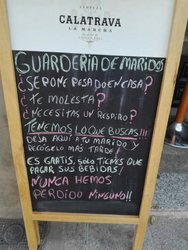 CERVEZA
CALATRAVA
LA MANCHA
GUARDERIA DE MARIDOS
¿SE PONE PESADO EN CASA?
¿TE MOLESTA?
¿NECESITAS UN RESPIRO?
TENEMOS LO QUE BUSCAS!!!
DEJA AQUI A TU MARIDO Y
RECÓGELO MAS TARDE!
ES GRATIS, SOLO TIENES QUE
PAGAR SUS BEBIDAS!
NUNCA HEMOS
PERDIDO NINGUNO!!